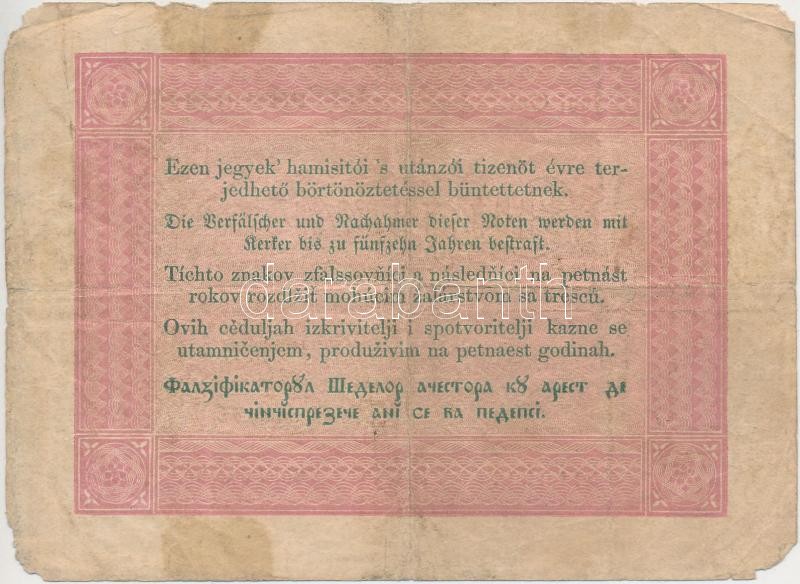 Ezen jegyek' hamisitói 's utánzói tizenöt évre ter-
jedhető börtönöztetéssel büntettetnek.
Die Verfälscher und Nachahmer dieser Noten werden mit
Kerker bis zu fünfzehn Jahren bestraft.
Tíchto znakov zfalssovňíci a následňíci na petnást
rokov rozdlžit mohúcim žalárstvom sa trescú.
darabanth
Ovih cěduljah izkrivitelji i spotvoritelji kazne se
utamničenjem, produživim na petnaest godinah.
Фалзіфікаторꙋл Шеделор ачестора кꙋ арест де
чінчіспрезече ані се ва педепсі.